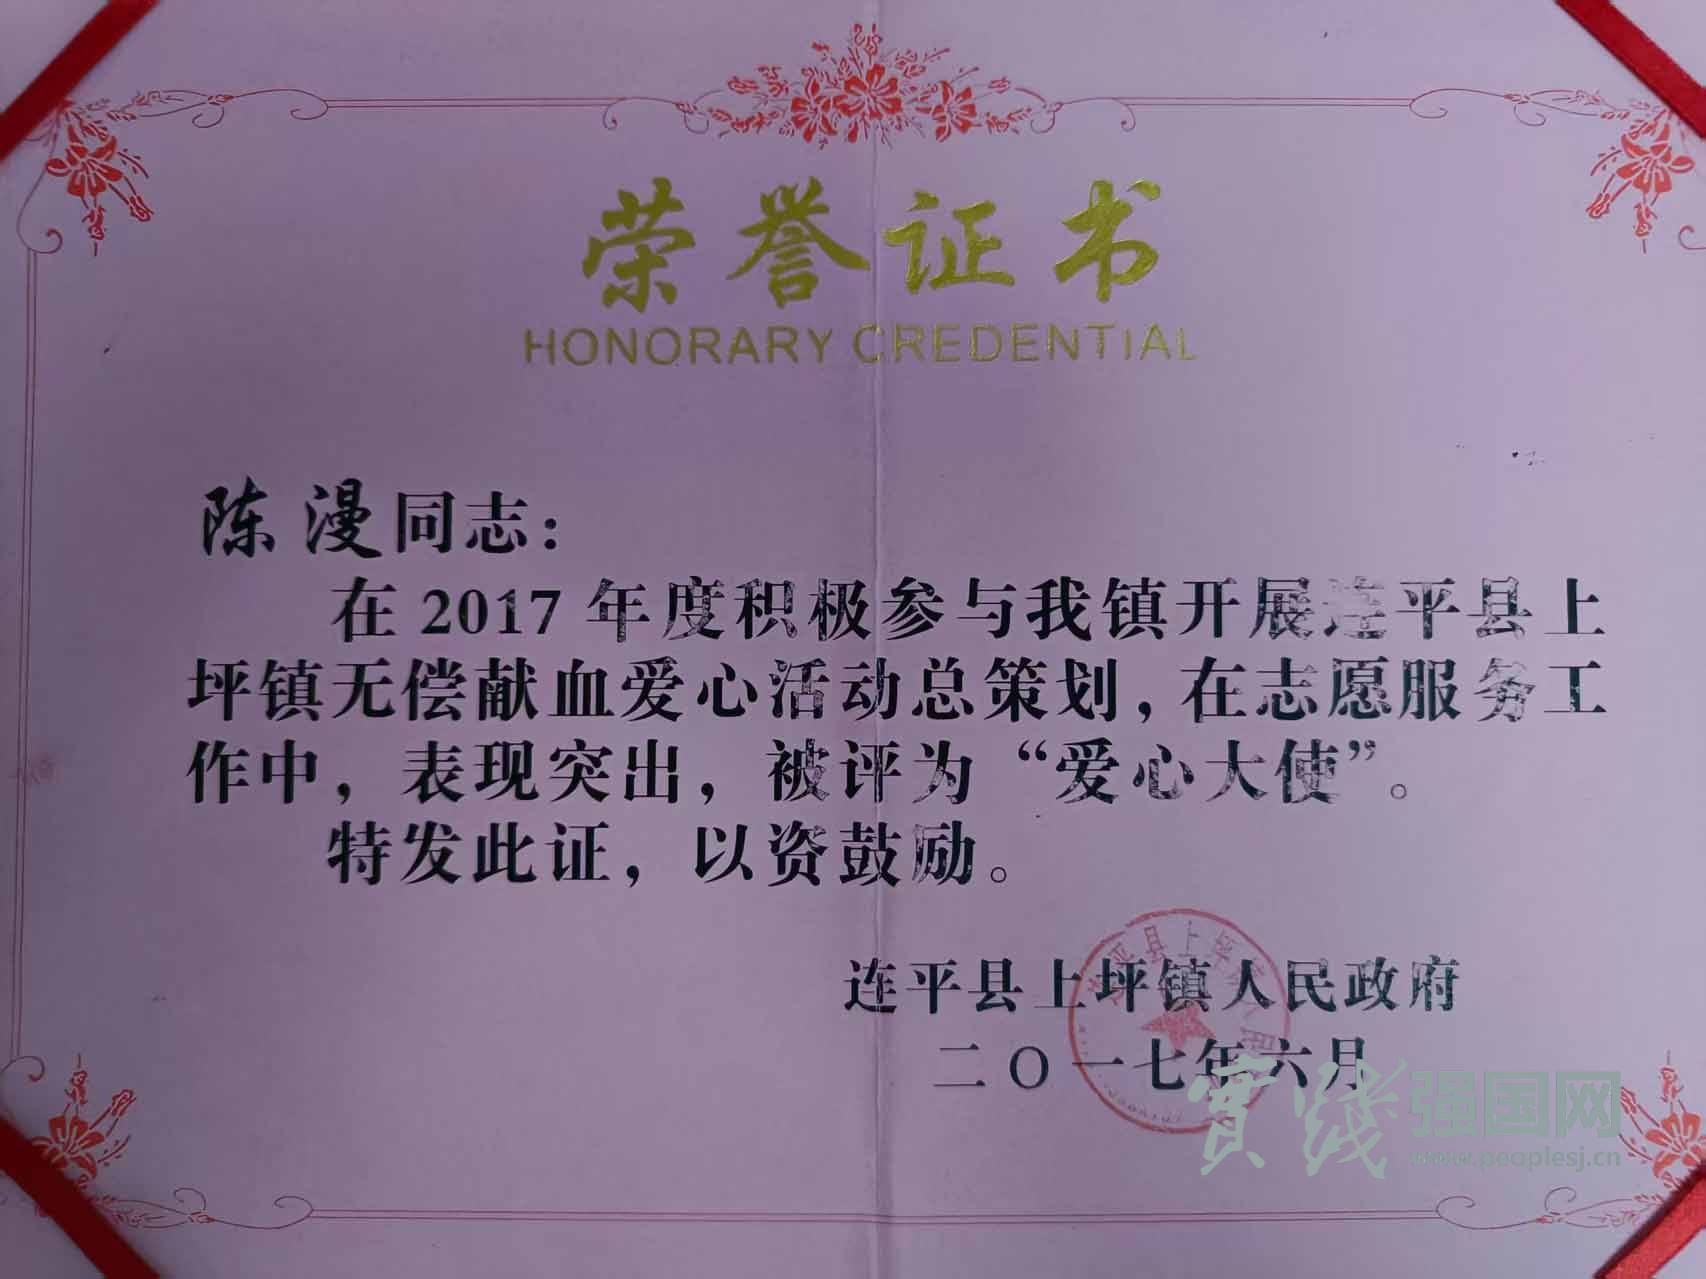 荣誉证书
HONORARY CREDENTIAL
陈漫同志：
在2017年度积极参与我镇开展连平县上
坪镇无偿献血爱心活动总策划，在志愿服务工
作中，表现突出，被评为“爱心大使”。
特发此证，以资鼓励。
连平县上坪镇人民政府
二〇一七年六月
實踐强国网
www.peoplesj.cn